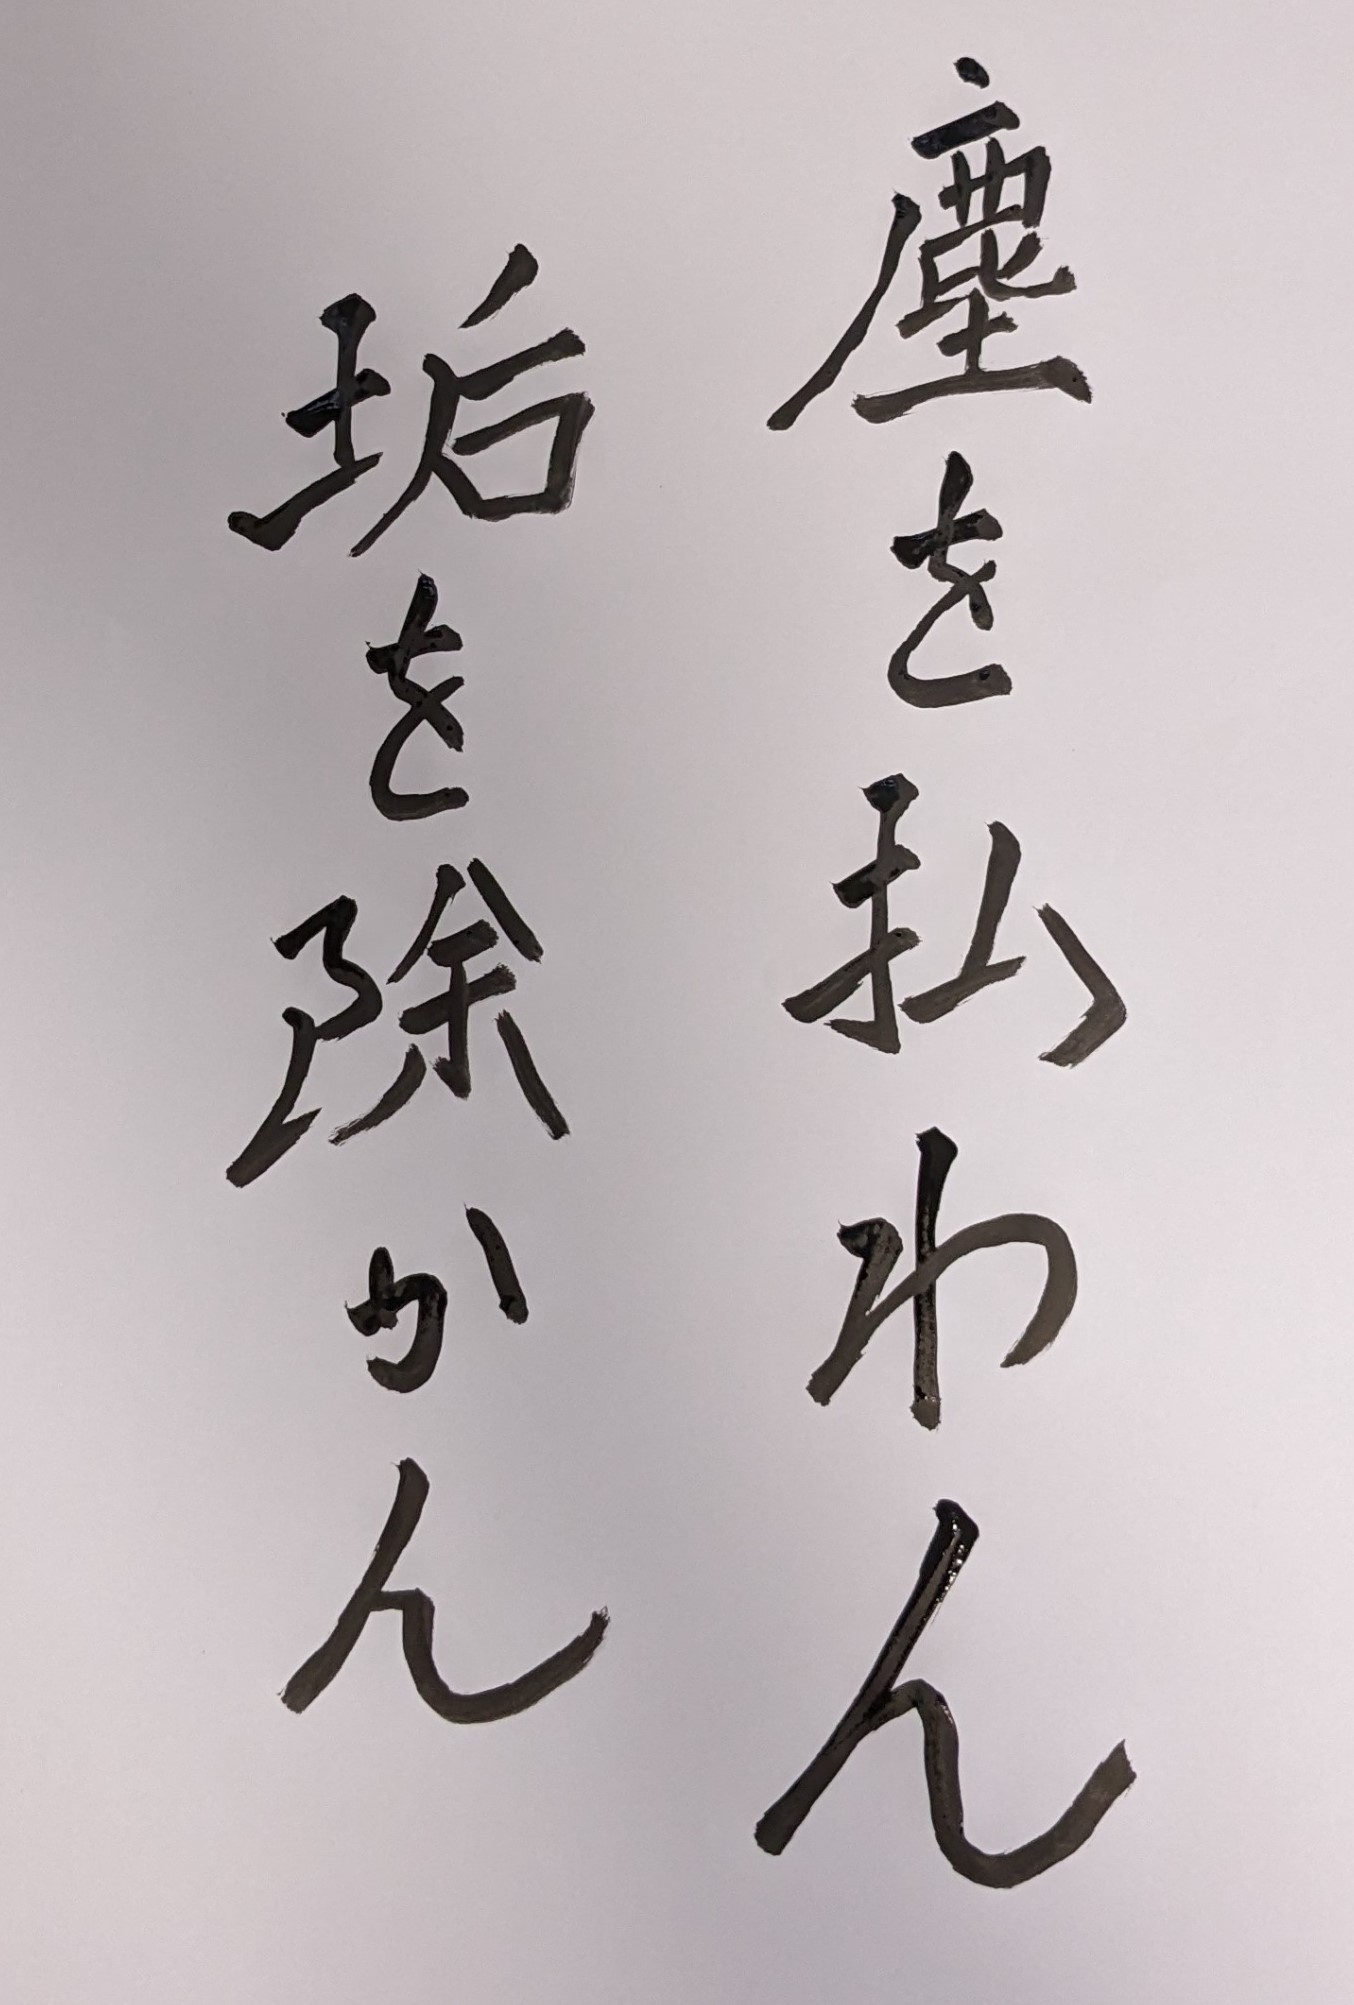 塵を払わん
垢を除かん